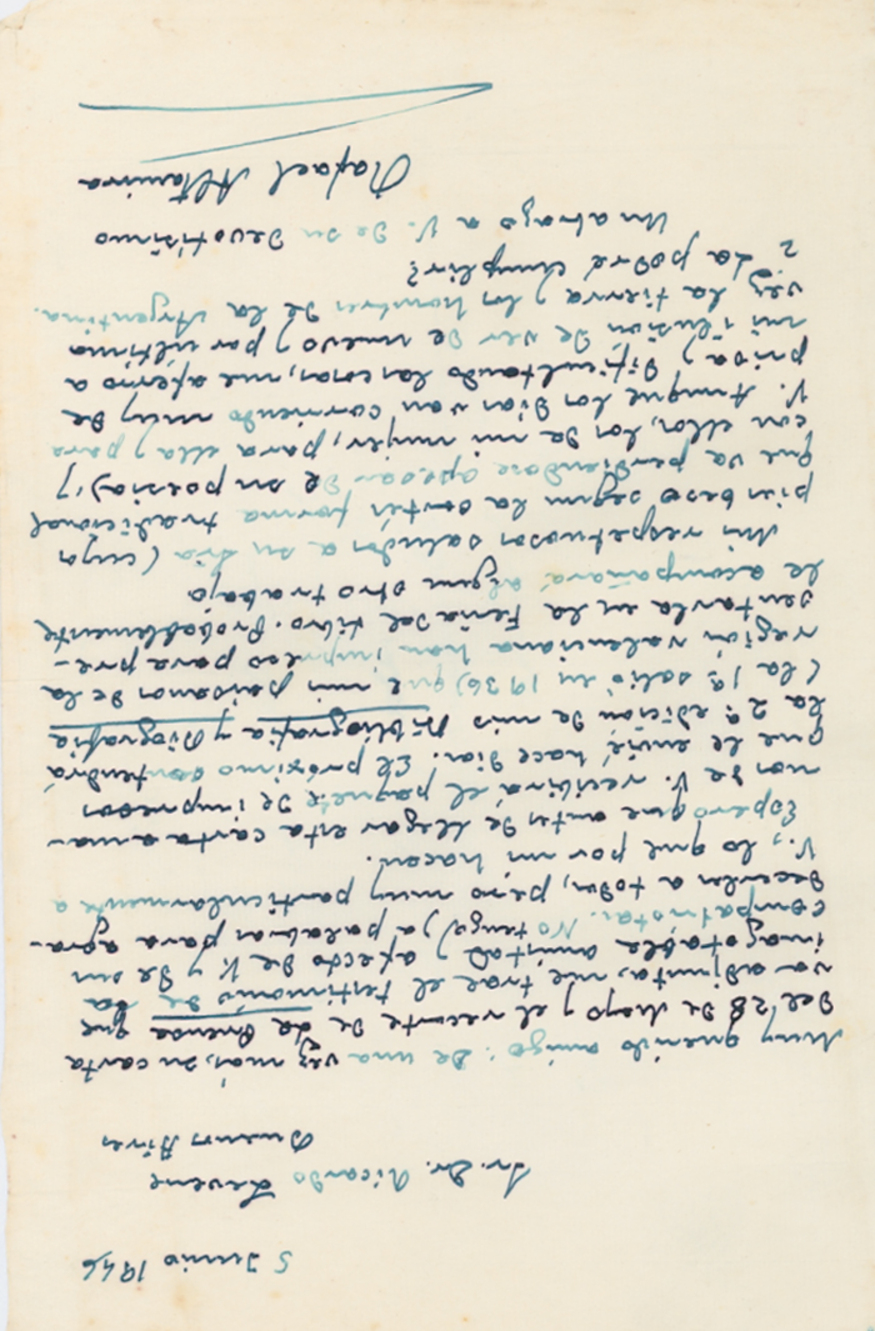 5 Junio 1946
Sr. Dr. Ricardo Levene
Buenos Aires
Muy querido amigo: De una vez más, su carta
del 28 de Mayo y el recorte de La Prensa que
va adjunto, me trae el testimonio de la
inagotable amistad y afecto de V. y de sus
compatriotas. No tengo ya palabras para agra-
decerlos a todos, pero muy particularmente a
V., lo que por mí hacen.
Espero que antes de llegar esta carta a ma-
nos de V. recibirá el paquete de impresos
que le envié, hace días. El próximo contendrá
la 2ª edición de mis Bibliografía y Biografía
(la 1ª salió en 1936) que mis paisanos de la
región valenciana han impreso para pre-
sentarla en la Feria del Libro. Probablemente
le acompañará algún otro trabajo
Mis respetuosos saludos a su Sra (cuyos
pies beso según la cortés forma tradicional
que va perdiendose apesar de su poesia), y
con ellos, los de mi mujer, para ella y para
V. Aunque los días van corriendo muy de
prisa y dificultando las cosas, me aferro a
mi ilusión de ver de nuevo y por última
vez la tierra y los hombres de la Argentina.
¿La podré cumplir?
Un abrazo a V. de su devotísimo
Rafael Altamira